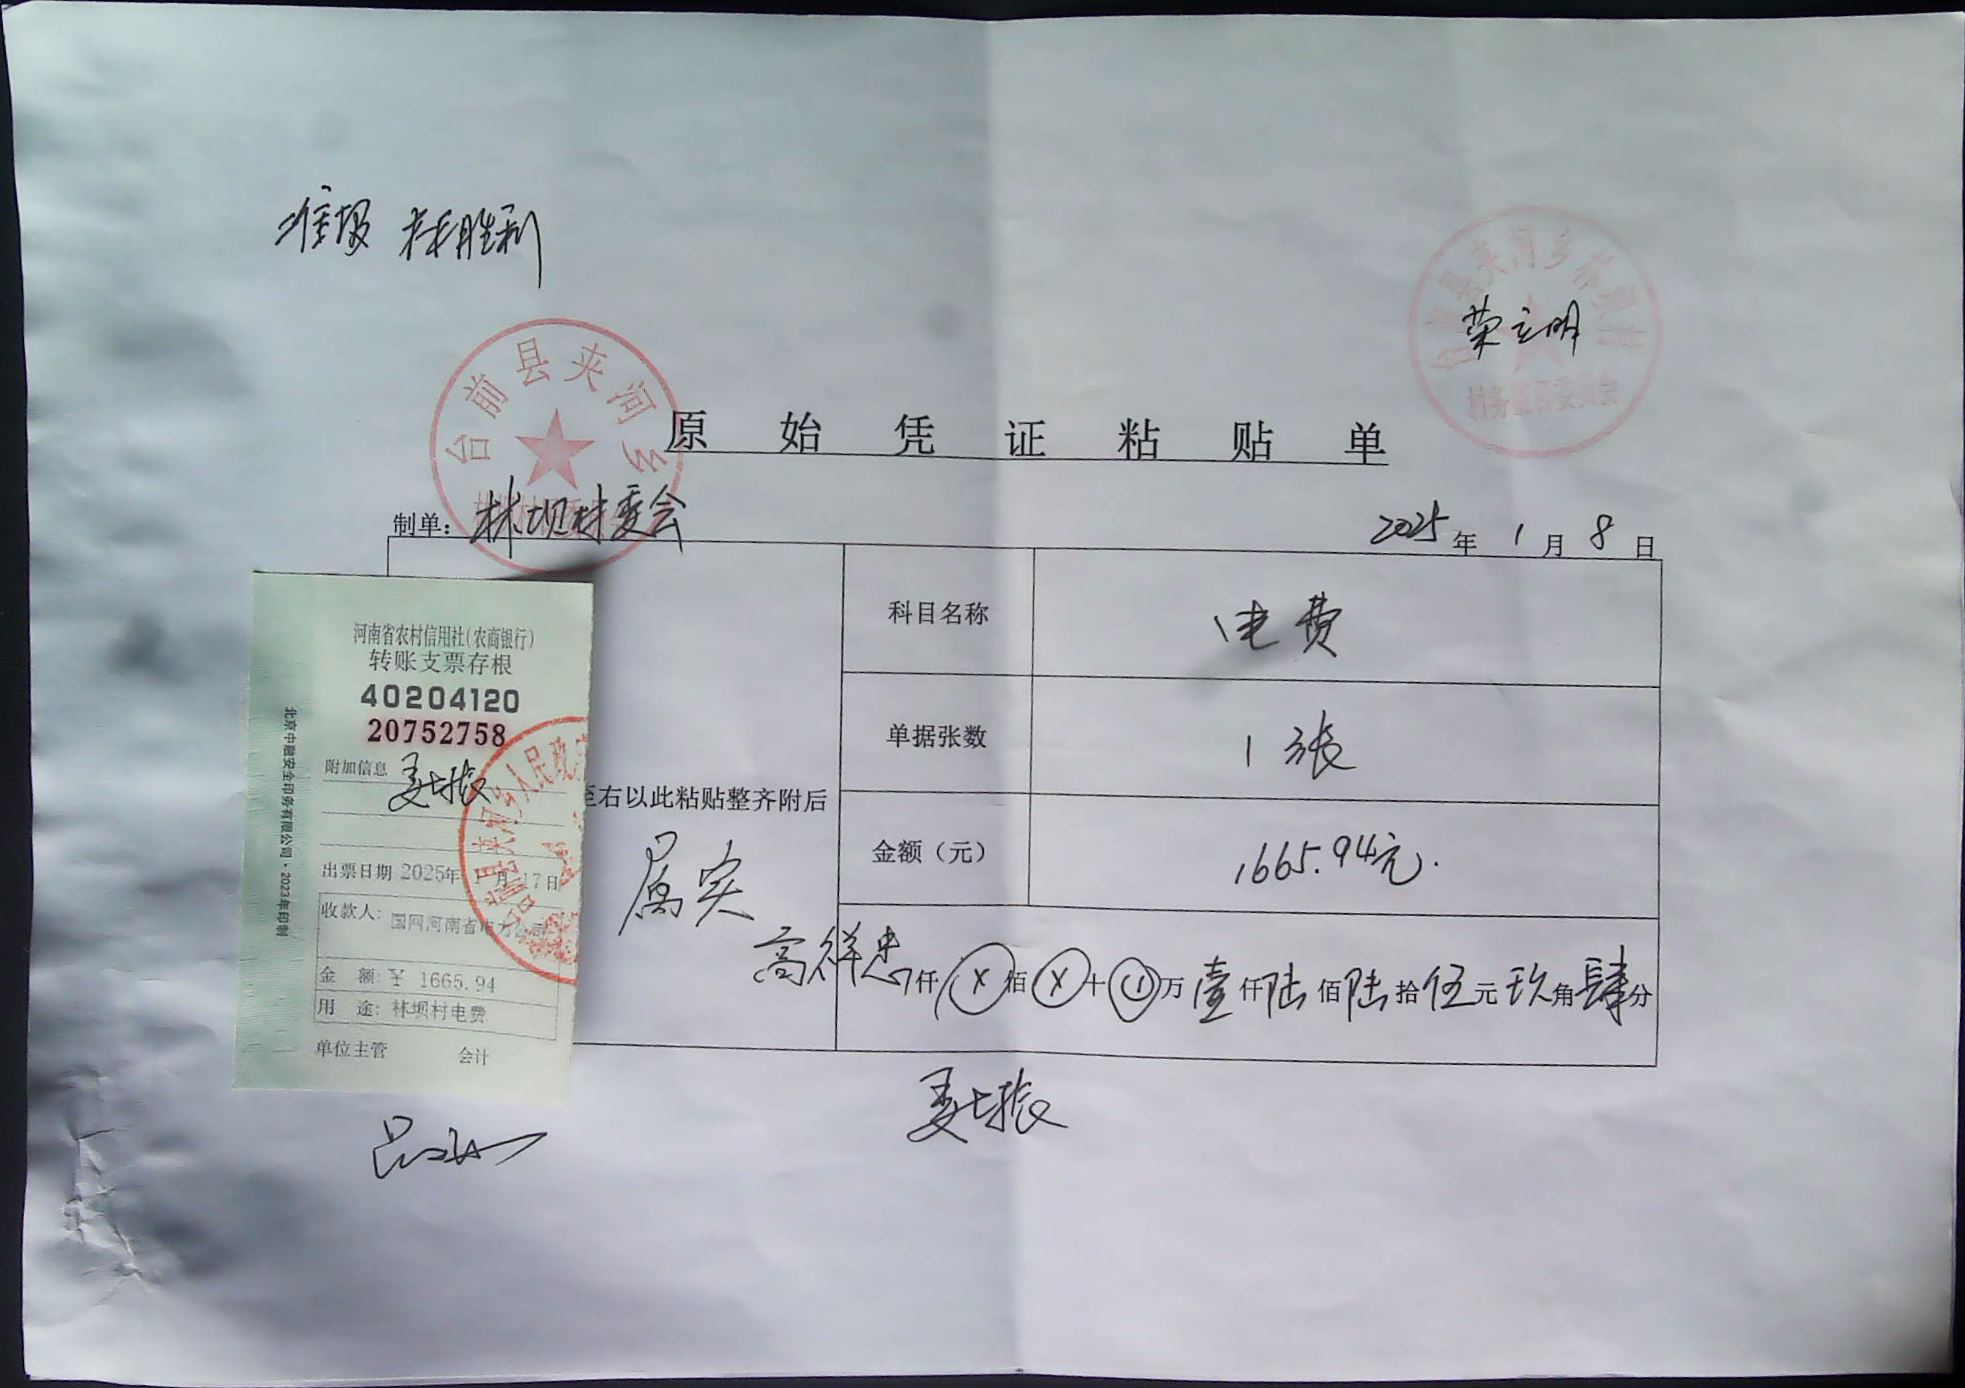 准报 林胜利
台前县夹河乡
荣立明
村务监督委员会
原始凭证粘贴单
制单：林坝村委会
2025年1月8日
科目名称 电费
单据张数 1张
金额（元） 1665.94元.
至右以此粘贴整齐附后
属实
高祥忠
仟 佰 十 万 壹仟陆佰陆拾伍元玖角肆分
河南省农村信用社(农商银行)
转账支票存根
40204120
20752758
附加信息
出票日期 2025年 月17日
收款人: 国网河南省电力公司
金 额: ¥ 1665.94
用 途: 林坝村电费
单位主管 会计
北京中融安全印务有限公司·2023年印制